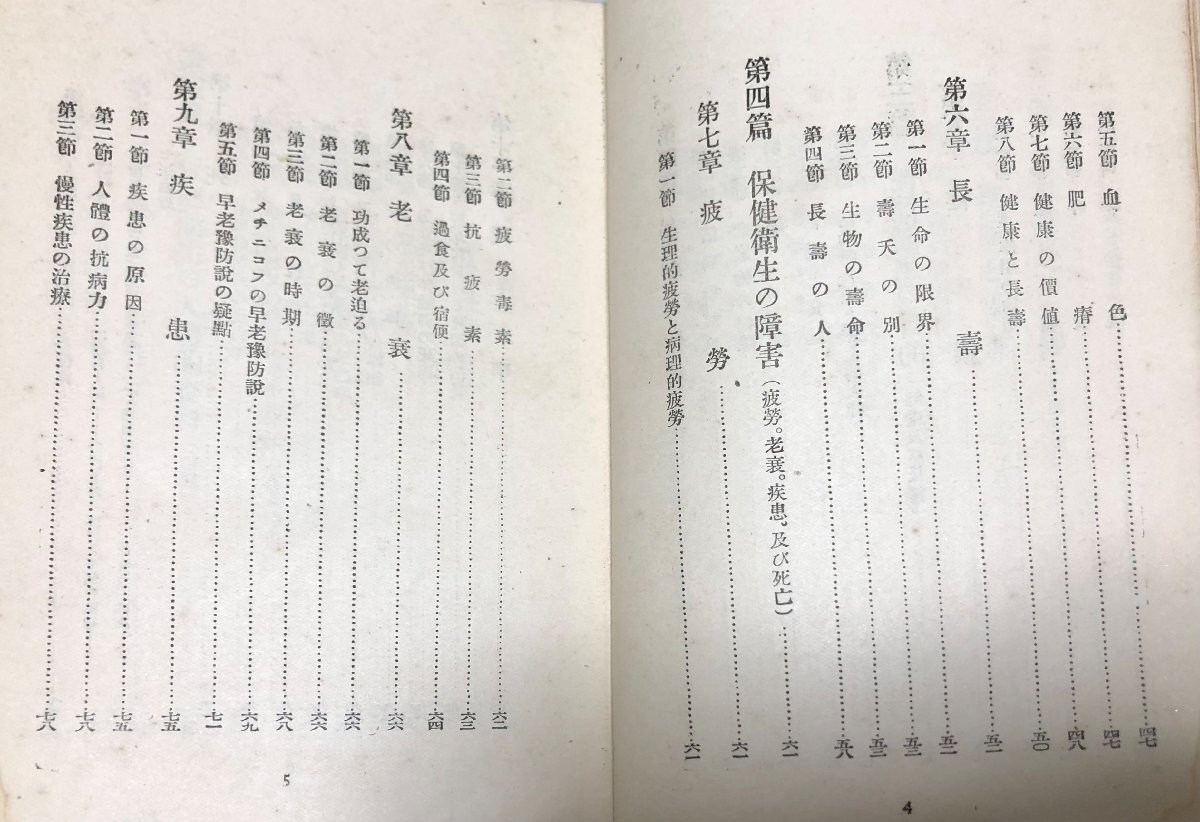 第五節 血色 四七
第六節 肥瘠 四七
第七節 健康の價値 四八
第八節 健康と長壽 五〇
第六章 長壽 五二
第一節 生命の限界 五二
第二節 壽夭の別 五三
第三節 生物の壽命 五三
第四節 長壽の人 五八
第四篇 保健衛生の障害(疲勞。老衰。疾患、及び死亡) 六一
第七章 疲勞 六一
第一節 生理的疲勞と病理的疲勞 六一
4
第二節 疲勞毒素 六二
第三節 抗疲素 六三
第四節 過食及び宿便 六四
第八章 老衰 六六
第一節 功成つて老迫る 六六
第二節 老衰の徵 六六
第三節 老衰の時期 六八
第四節 メチニコフの早老豫防說 六九
第五節 早老豫防說の疑點 七一
第九章 疾患 七五
第一節 疾患の原因 七五
第二節 人體の抗病力 七八
第三節 慢性疾患の治療 七八
5